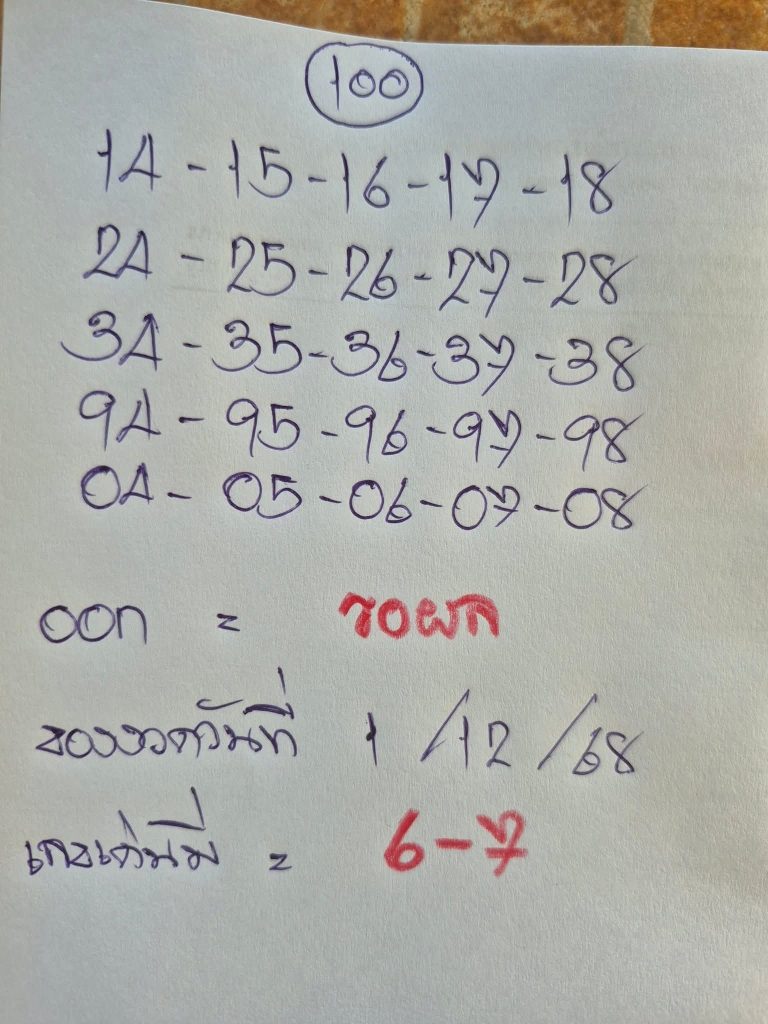 100
14 - 15 - 16 - 17 - 18
24 - 25 - 26 - 27 - 28
34 - 35 - 36 - 37 - 38
94 - 95 - 96 - 97 - 98
04 - 05 - 06 - 07 - 08
ออก = รอผล
ของงวดวันที่ 1 / 12 / 68
เลขเด่นมี = 6 - 7